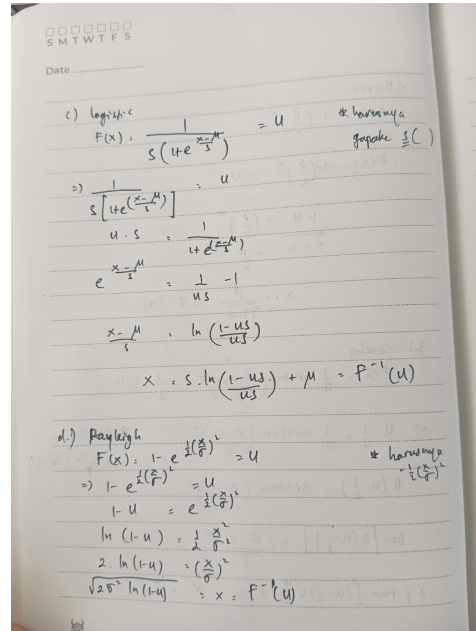 S M T W T F S
Date
c) logistic
F(x) = 1 / s(1+e^((x-μ)/s)) = u * harusnya gapake s( )
=) 1 / s[1+e^((x-μ)/s)] = u
u . s = 1 / 1+e^((x-μ)/s)
e^((x-μ)/s) = 1/us - 1
(x-μ)/s = ln ((1-us)/us)
x = s . ln ((1-us)/us) + μ = F^-1 (u)
d.) Rayleigh
F(x) = 1 - e^(1/2 (x/σ)^2) = u * harusnya -1/2 (x/σ)^2
=) 1 - e^(1/2 (x/σ)^2) = u
1 - u = e^(1/2 (x/σ)^2)
ln (1-u) = 1/2 x^2/σ^2
2 . ln (1-u) = (x/σ)^2
√(2σ^2 ln (1-u)) = x = F^-1 (u)